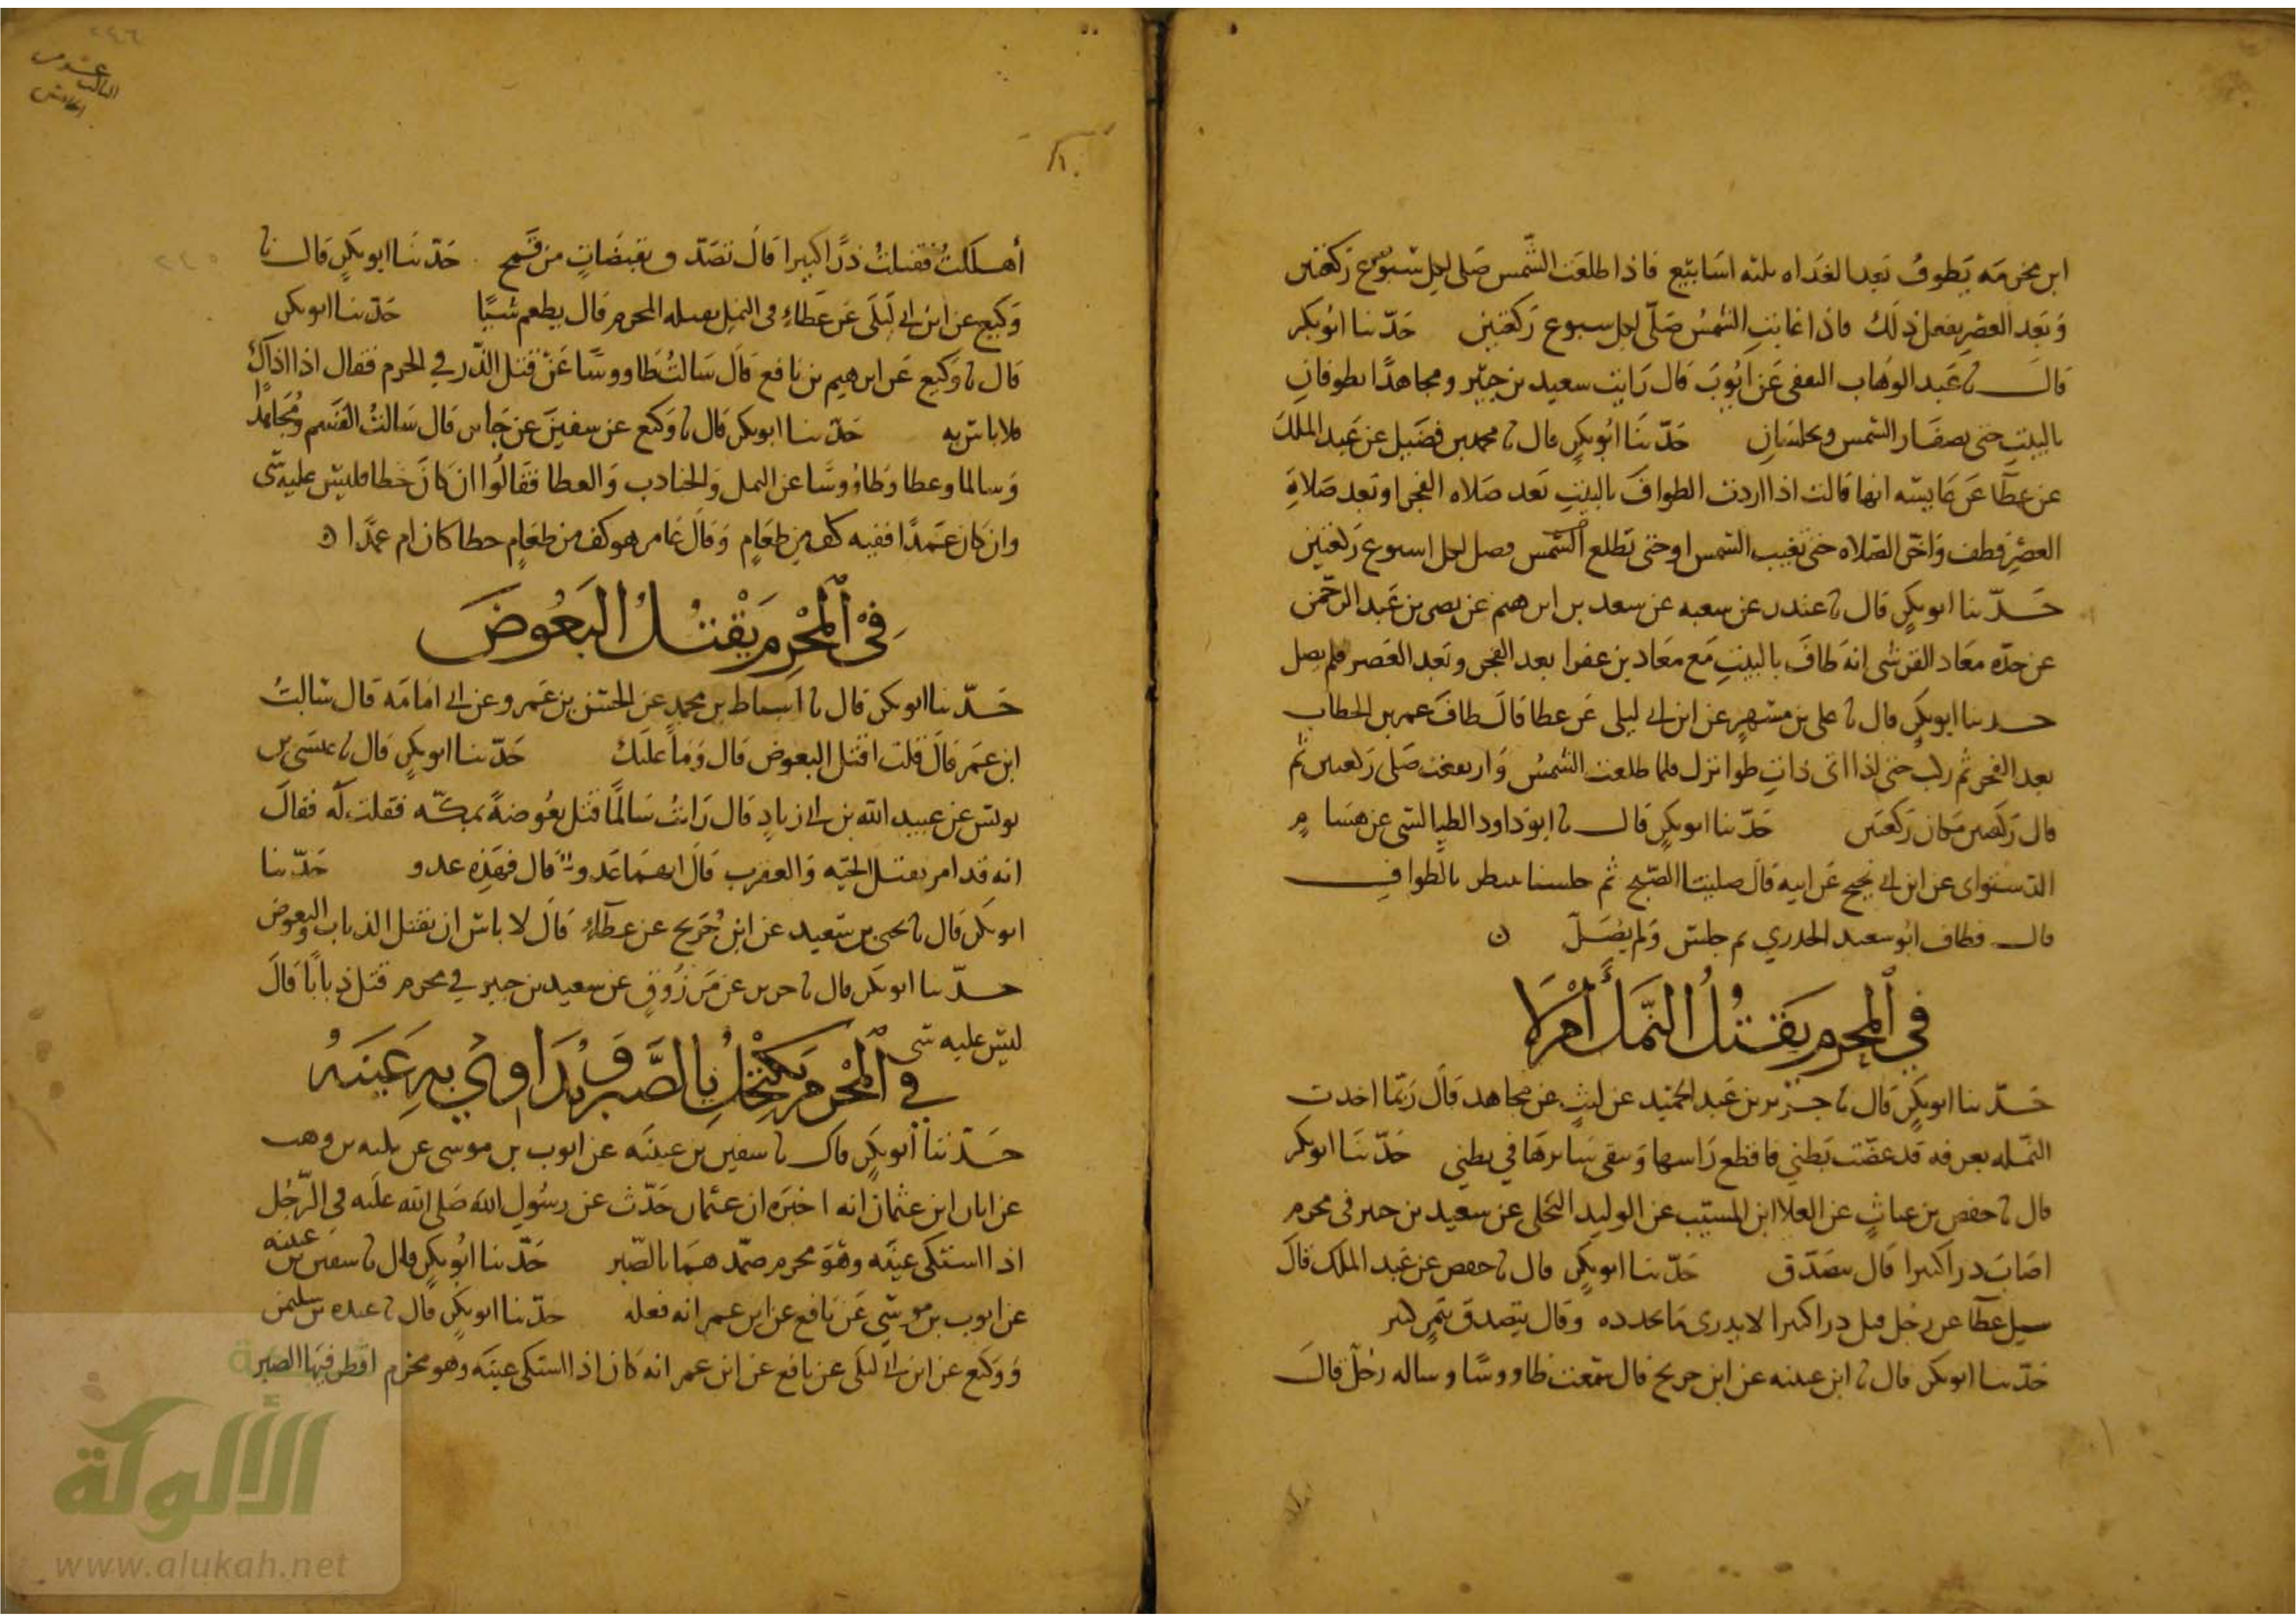 ابن مخرمه يطوف بعد الغداه ثلثه اسابيع فاذا طلعت الشمس صلى لكل سبوع ركعتين
وبعد العصر يفعل ذلك فاذا غابت الشمس صلى لكل سبوع ركعتين حدثنا ابو بكر
قال نا عبد الوهاب الثقفي عن ايوب قال رايت سعيد بن جبير ومجاهدا يطوفان
بالبيت حتى تصفار الشمس ويجلسان حدثنا ابو بكر قال نا محمد بن فضيل عن عبد الملك
عن عطا عن عايشه انها قالت اذا اردت الطواف بالبيت بعد صلاه الفجر او بعد صلاة
العصر فطف واخر الصلاه حتى تغيب الشمس او حتى تطلع الشمس فصل لكل اسبوع ركعتين
حدثنا ابو بكر قال نا غندر عن شعبه عن سعد بن ابرهيم عن نصر بن عبد الرحمن
عن جده معاذ القرشي انه طاف بالبيت مع معاذ بن عفرا بعد الفجر وبعد العصر فلم يصل
حدثنا ابو بكر قال نا علي بن مسهر عن ابن ابي ليلى عن عطا قال طاف عمر بن الخطاب
بعد الفجر ثم ركب حتى اذا اتى ذات طوا نزل فلما طلعت الشمس وارتفعت صلى ركعتين ثم
قال ركعتين مكان ركعتين حدثنا ابو بكر قال نا ابو داود الطيالسي عن هشام
الدستواى عن ابن ابي نجيح عن ابيه قال صلينا الصبح ثم جلسنا ننظر بالطواف
قال فطاف ابو سعيد الخدري ثم جلس ولم يصل ن
في المحرم يقتل النمل أم لا
حدثنا ابو بكر قال نا جرير بن عبد الحميد عن ليث عن مجاهد قال ربما اخذت
النمله بعرفه قد عضت بطني فاقطع راسها وبقى سايرها في بطني حدثنا ابو بكر
قال نا حفص بن غياث عن العلا ابن المسيب عن الوليد البجلى عن سعيد بن جبير فى محرم
اصاب ذرا كثيرا قال يتصدق حدثنا ابو بكر قال نا حفص عن عبد الملك قال
سيل عطا عن رجل قتل ذرا كثيرا لا يدرى ما عدده وقال يتصدق بتمر كثير
حدثنا ابو بكر قال نا ابن عيينه عن ابن جريج قال سمعت طاووسا وساله رجل قال
أهللت فقتلت ذرا كثيرا قال تصدق بقبضات من قمح حدثنا ابو بكر قال نا
وكيع عن ابن ابي ليلى عن عطاء فى النمل يقتله المحرم قال يطعم شيا حدثنا ابو بكر
قال نا وكيع عن ابرهيم بن نافع قال سالت طاووسا عن قتل الذر في الحرم فقال اذا اذاك
فلا باس به حدثنا ابو بكر قال نا وكيع عن سفين عن جابر قال سالت القسم ومجاهدا
وسالما وعطا وطاووسا عن النمل والجنادب والعظا فقالوا ان كان خطا فليس عليه شى
وان كان عمدا ففيه كف من طعام وقال عامر هو كف من طعام خطا كان ام عمدا ن
في المحرم يقتل البعوض
حدثنا ابو بكر قال نا اسباط بن محمد عن الحسن بن عمرو عن ابي امامه قال سالت
ابن عمر قال قلت اقتل البعوض قال وما عليك حدثنا ابو بكر قال نا عيسى بن
يونس عن عبيد الله بن ابي زياد قال رايت سالما قتل بعوضة بمكه فقلت له فقال
انه قد امر بقتل الحيه والعقرب قال انهما عدو قال فهذه عدو حدثنا
ابو بكر قال نا يحيى بن سعيد عن ابن جريج عن عطاء قال لا باس ان يقتل الذباب والبعوض
حدثنا ابو بكر قال نا جرير عن مرزوق عن سعيد بن جبير في محرم قتل ذبابا قال
ليس عليه شى
في المحرم يكتحل بالصبر ويداوي به عينه
حدثنا ابو بكر قال نا سفين بن عيينه عن ايوب بن موسى عن نبيه بن وهب
عن ابان ابن عثمان انه اخبره ان عثمان حدث عن رسول الله صلى الله عليه في الرجل
اذا اشتكى عينه وهو محرم ضمدهما بالصبر حدثنا ابو بكر قال نا سفين بن عيينه
عن ايوب بن موسى عن نافع عن ابن عمر انه فعله حدثنا ابو بكر قال نا عبده بن سليمن
ووكيع عن ابن ابي ليلى عن نافع عن ابن عمر انه كان اذا اشتكى عينه وهو محرم اقطر فيها الصبر
الألوكة
www.alukah.net